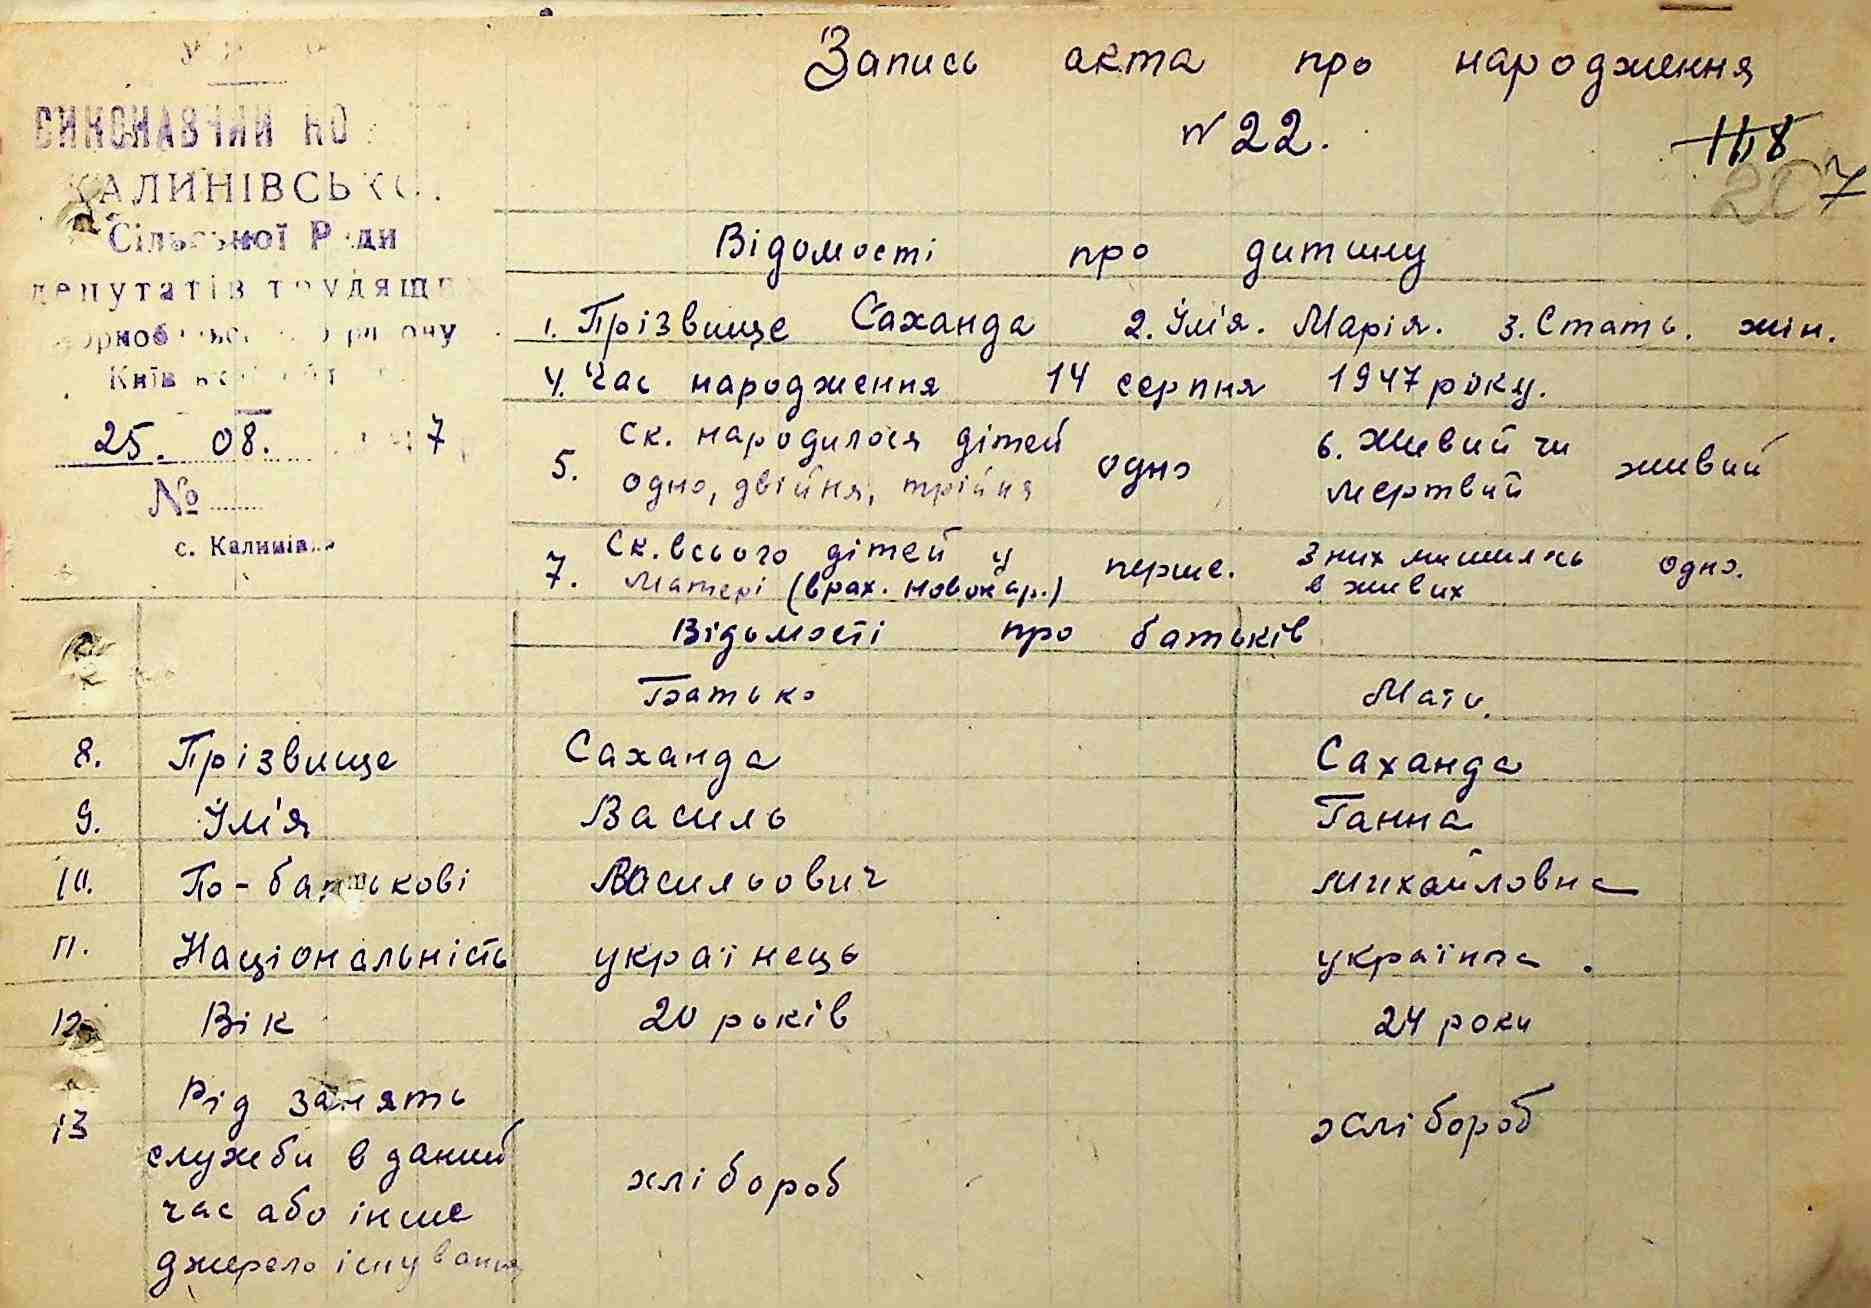 Запись акта про народження
№ 22.
118
207
ВИКОНАВЧИЙ КО
КАЛИНІВСЬКО
Сільської Ради
депутатів трудящ
району
Київ
25. 08. 7
№
с. Калинівка
Відомості про дитину
1. Прізвище Саханда 2. Ім'я. Марія. 3. Стать. жін.
4. Час народження 14 серпня 1947 року.
5. Ск. народилося дітей одно, двійня, трійня одно 6. Живий чи мертвий живий
7. Ск. всього дітей у матері (врах. новонар.) перше. З них лишилось в живих одно.
Відомості про батьків
Батько Мати.
8. Прізвище Саханда Саханда
9. Ім'я Василь Ганна
10. По-батькові Васильович Михайловна
11. Національність українець українка.
12. Вік 20 років 24 роки
13 Рід занять
служби в даний
час або інше
джерело існування
хлібороб хлібороб